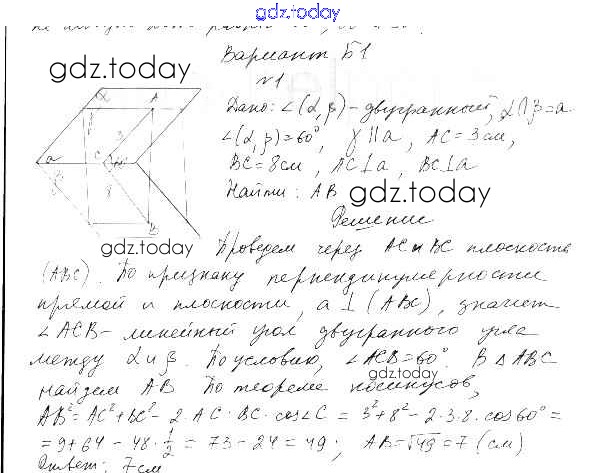 gdz.today
Вариант Б1
№1
gdz.today
Дано: ∠(α,β) – двугранный, α∩β=a
∠(α,β)=60°, γ∥a, AC=3см,
BC=8см, AC⊥a, BC⊥a
Найти: AB gdz.today
Решение
gdz.today Проведем через AC и BC плоскость
(ABC). По признаку перпендикулярности
прямой и плоскости, a⊥(ABC), значит
∠ACB – линейный угол двугранного угла
между α и β. По условию, ∠ACB=60°. В △ABC
gdz.today
найдем AB По теореме косинусов,
AB²=AC²+BC²-2·AC·BC·cos∠C = 3²+8²-2·3·8·cos60°=
=9+64-48·1/2=73-24=49; AB=√49=7(см)
Ответ: 7см
gdz.today